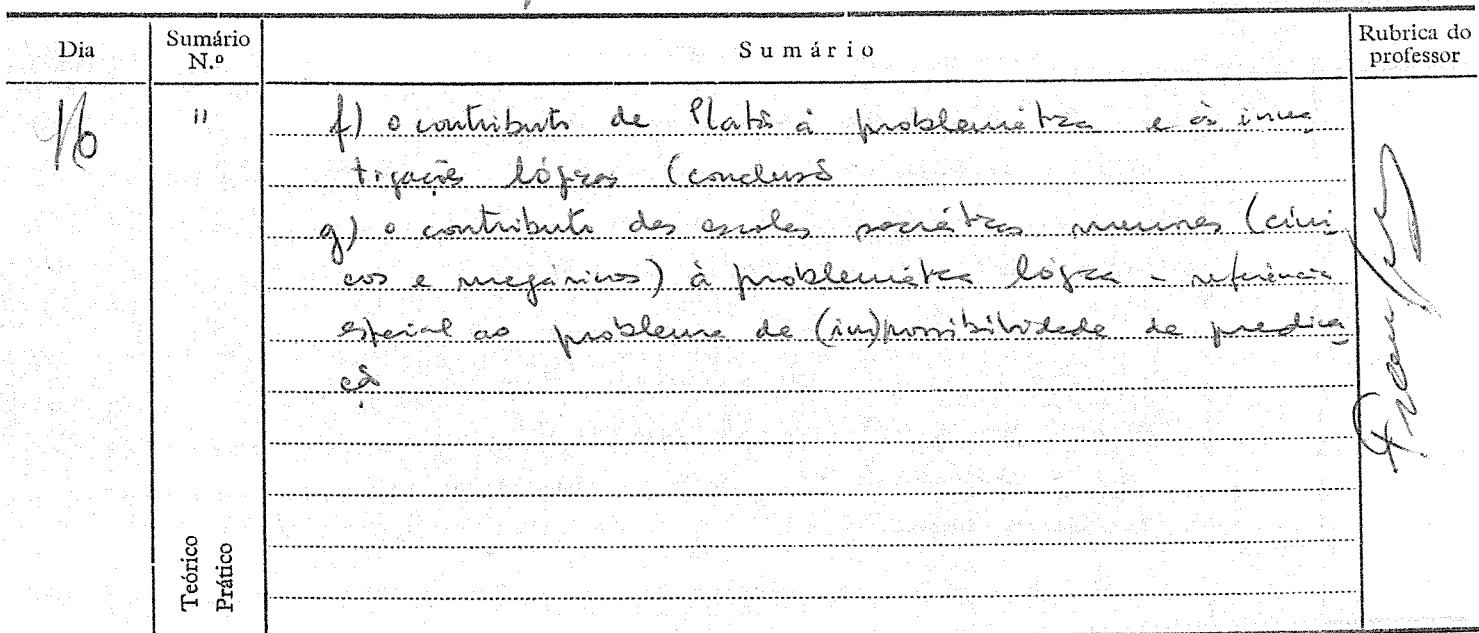 Dia
Sumário N.º
Sumário
Rubrica do professor
16
11
f) o contributo de Platão à problemática e às inves
tigações lógicas (conclusão
g) o contributo das escolas socráticas menores (cíni
cos e megáricos) à problemática lógica - referência
especial ao problema da (im)possibilidade da predica
ção
Teórico
Prático